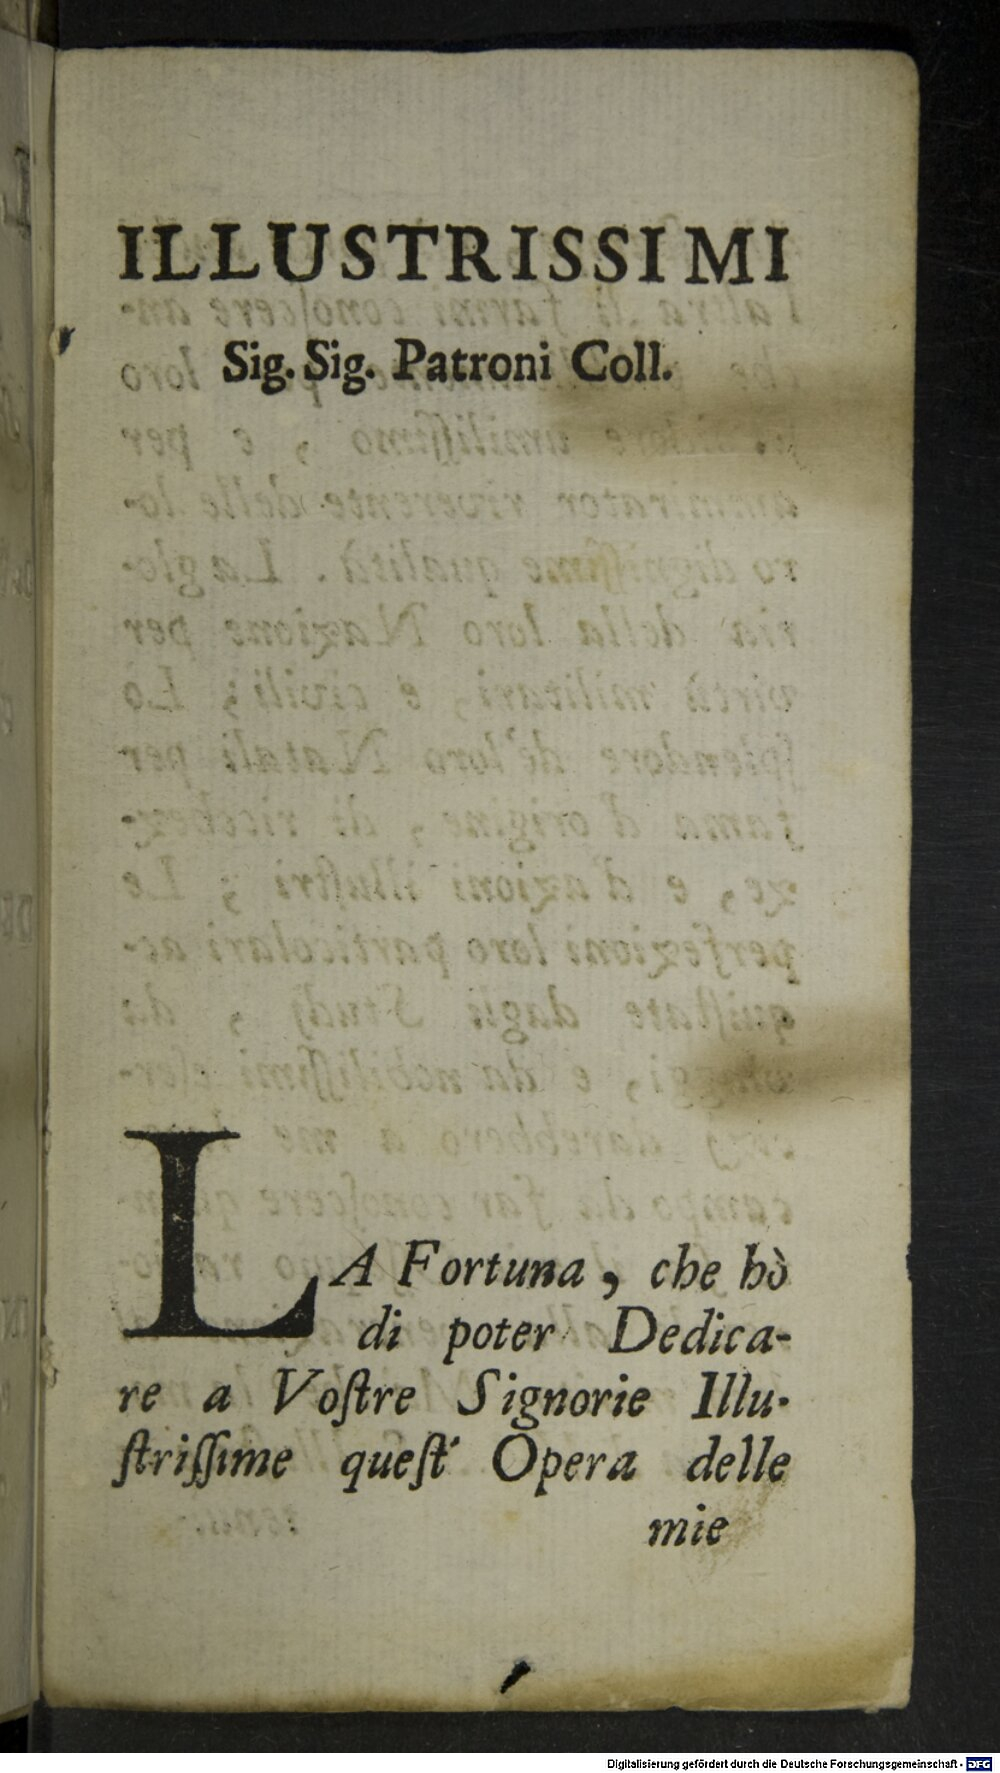 ILLUSTRISSIMI
Sig. Sig. Patroni Coll.
LA Fortuna, che hò
di poter Dedica-
re a Voſtre Signorie Illu-
ſtriſſime queſt' Opera delle
mie
Digitalisierung gefördert durch die Deutsche Forschungsgemeinschaft - DFG